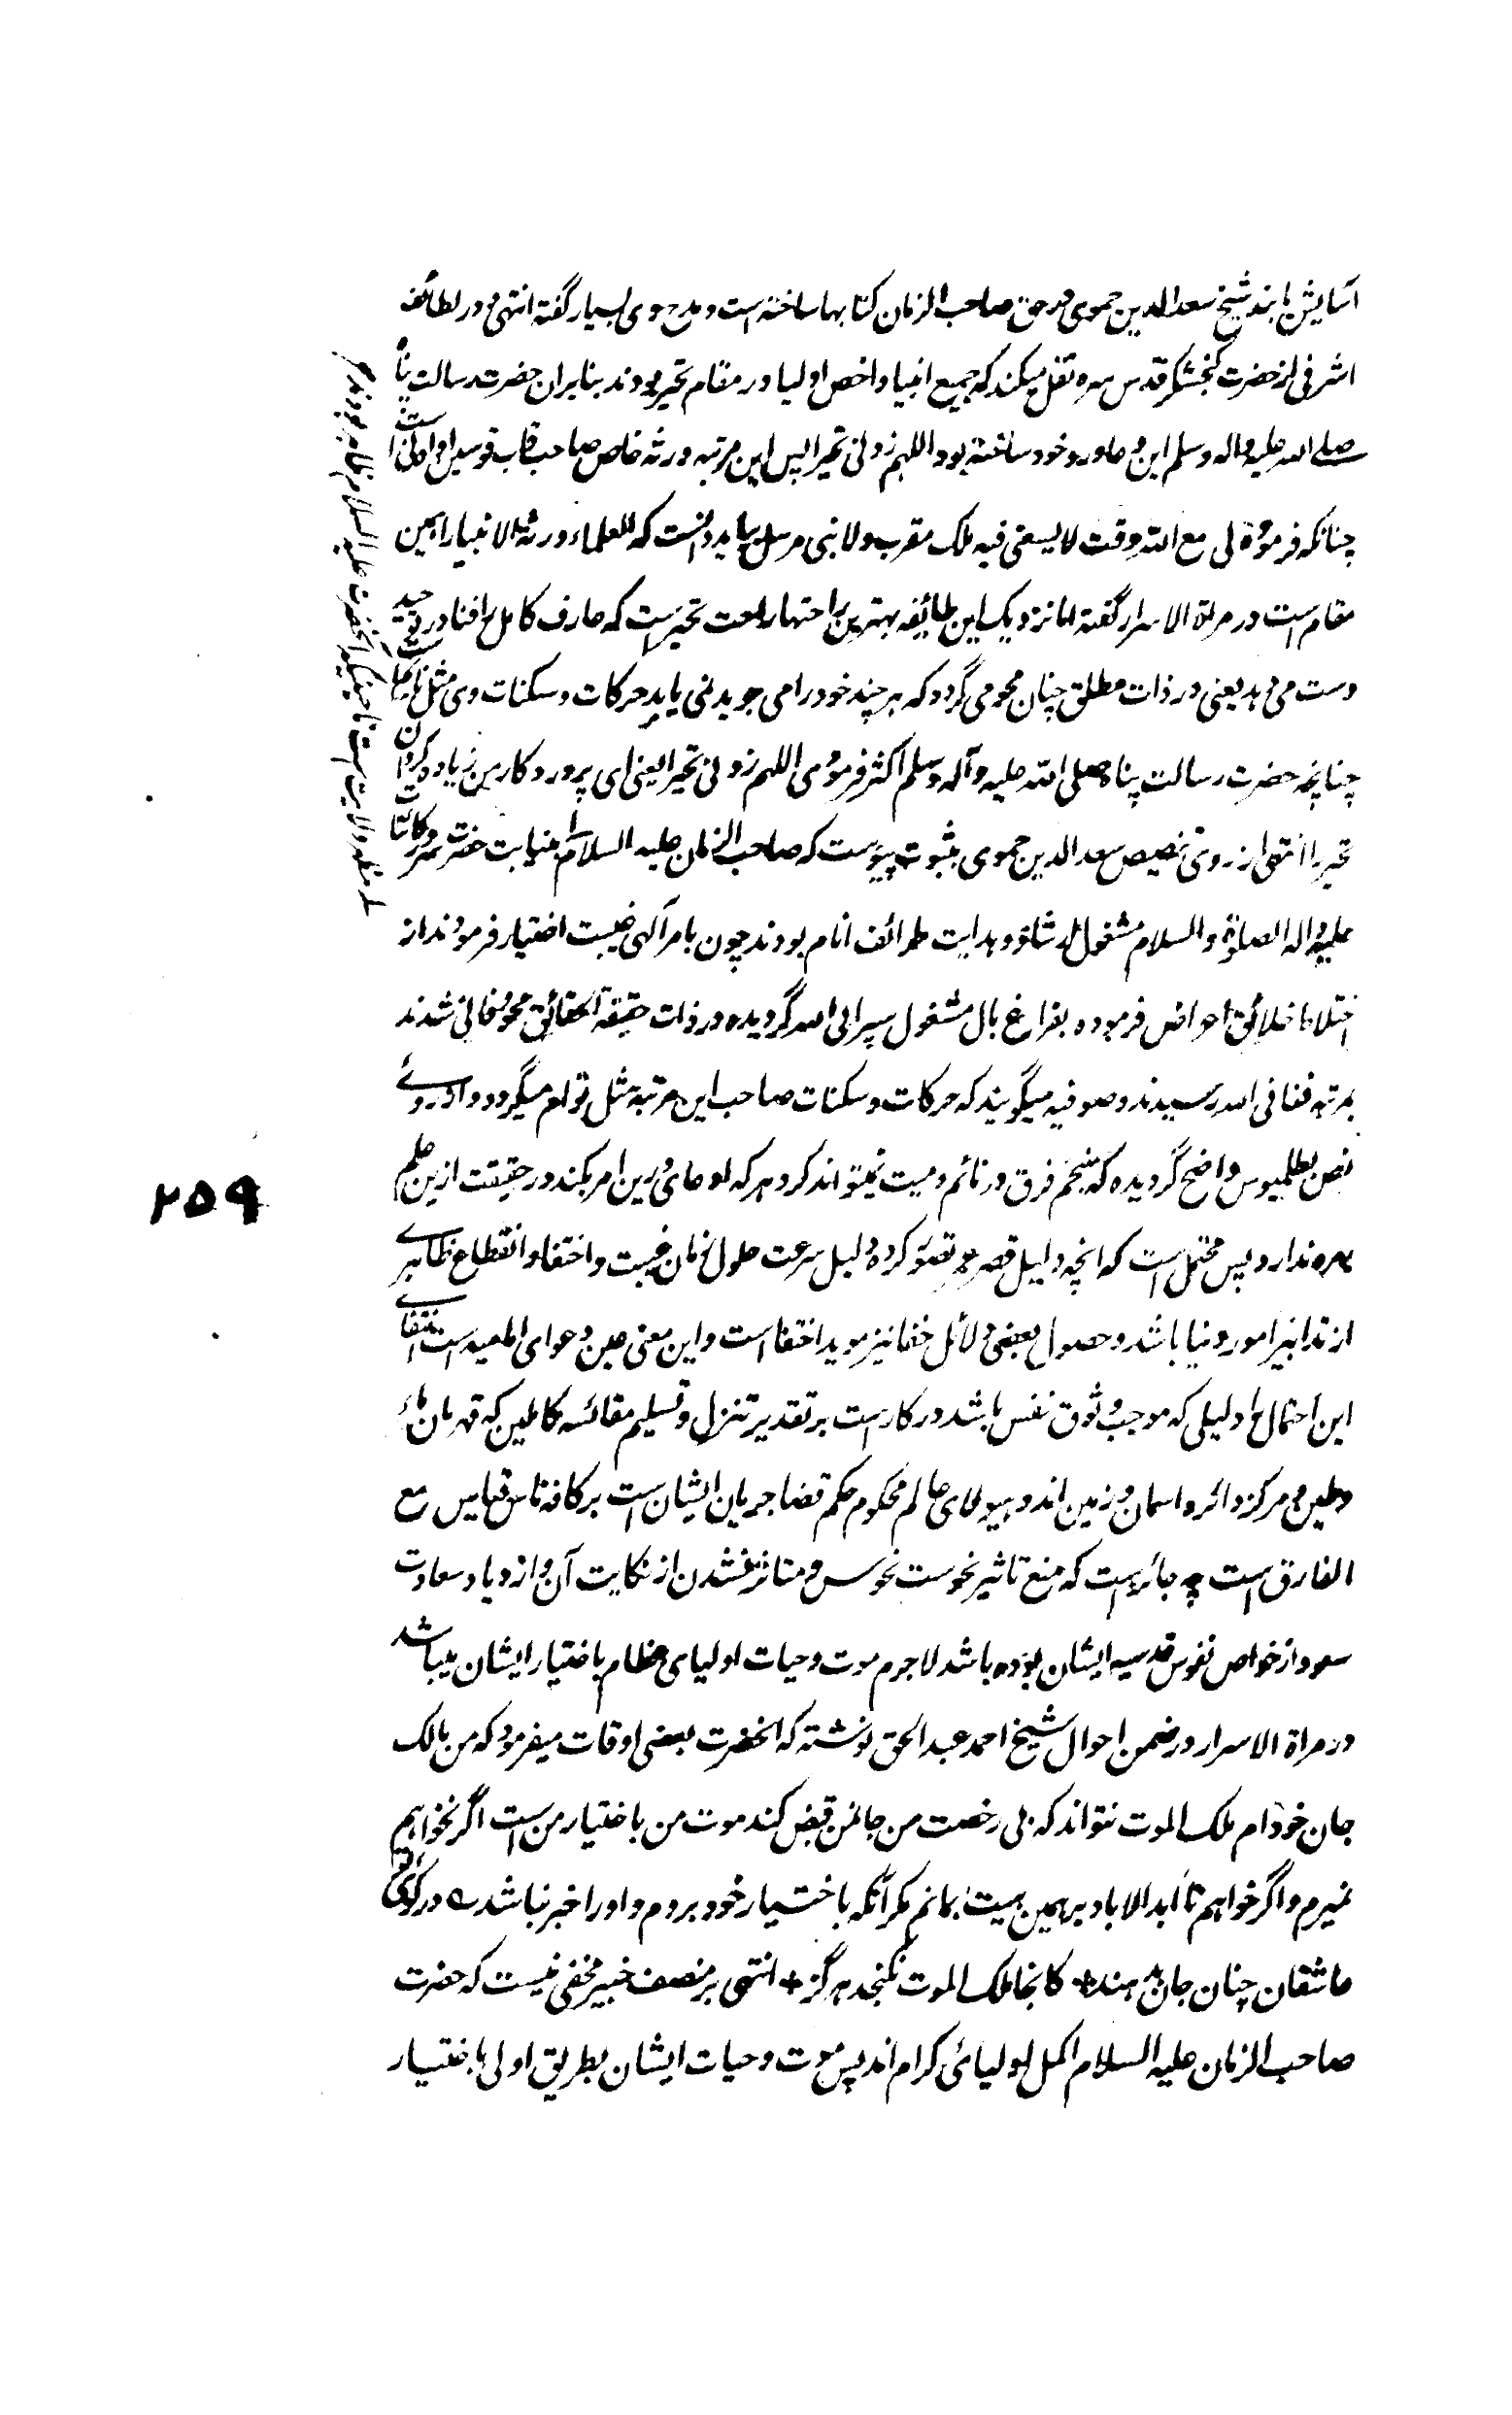 آسایش یابند شیخ سعدالدین حموی در حق صاحب الزمان کتابها ساخته است و مدح وی بسیار گفته انتهی و در لطائف
اشرفی از حضرت گنجشکر قدس سره نقل میکند که جمیع انبیا و اخص اولیا در مقام تحیر بودند بنابران حضرت رسالت پناه
صلے الله علیه و اله و سلم این دعا ورد خود ساخته بود اللهم زدنی تحیرا پس این مرتبه ورثه خاص صاحب قاب قوسین او ادنی است
چنانکه فرموده لی مع الله وقت لا یسعنی فیه ملک مقرب ولا نبی مرسل بباید دانست که العلماء ورثة الانبیا را همین
مقام است در مراة الاسرار گفته اما نزدیک این طائفه بهترین راحتها راحت تحیر است که عارف کامل را فنا در توحید
دست می دهد یعنی در ذات مطلق چنان محو می گردد که هر چند خود را می جوید نمی یابد حرکات و سکنات وی مثل
چنانچه حضرت رسالت پناه صلی الله علیه و آله وسلم اکثر فرمودی اللهم زدنی تحیرا یعنی ای پروردگار من زیاده گردان
تحیر را انتهی از روی تخصیص سعد الدین حموی بثبوت پیوست که صاحب الزمان علیه السلام را بنیابت حضرت سرور کائنات
علیه و اله الصلوة والسلام مشغول ارشاد و هدایت طوائف انام بودند چون بامر آلهی غیبت اختیار فرمودند از
اختلاط خلائق اعراض فرموده بفراغ بال مشغول سیر الی الله گردیده در ذات حقیقة الحقائق محو و فانی شدند
بمرتبه فنا فی الله رسیدند و صوفیه میگویند که حرکات و سکنات صاحب این مرتبه مثل میگردد و از روے
نص بطلمیوس واضح گردیده که منجم فرق در نائم و میت نمیتواند کرد هر که ادعای درین امر بکند در حقیقت ازین علم
بهره ندارد پس محتمل است که انچه دلیل قصر عمر تصور کرده دلیل سرعت حلول زمان غیبت و اختفا و انقطاع ظاهرے
از تدابیر امور دنیا باشد و حصول بعضی دلائل خفا نیز موید اختفا است و این معنی عین دعوای است
این احتمال را دلیلی که موجب وثوق نفس باشد در کار است بر تقدیر تنزل و تسلیم مقائسه کاملین که قهرمان ماء
وطین و مرکز دائره اسمان و زمین اند و هیولای عالم محکوم حکم قضا جریان ایشان است بر کافه ناس قیاس مع
الفارق است چه جائز است که منع تاثیر نحوست نحوس و متاثر نشدن از نکایت آن و ازدیاد سعادت
سعود از خواص نفوس قدسیه ایشان بوده باشد لاجرم موت و حیات اولیای عظام باختیار ایشان میباشد
در مراة الاسرار در ضمن احوال شیخ احمد عبدالحق نوشته که انحضرت بعضی اوقات میفرمود که من مالک
جان خودام ملک الموت نتواند که بی رخصت من جان من قبض کند موت من باختیار من است اگر نخواهم
نمیرم و اگر خواهم تا ابد الاباد برهمین بمانم مگر آنکه باختیار خود بروم و او را خبر نباشد ے در کوی تو
عاشقان چنان جان بدهند + کانجا ملک الموت نگنجد هرگز + انتهی بر منصف خبیر مخفی نیست که حضرت
صاحب الزمان علیه السلام اکمل اولیائی کرام اند پس موت و حیات ایشان بطریق اولی باختیار
۲۵۹